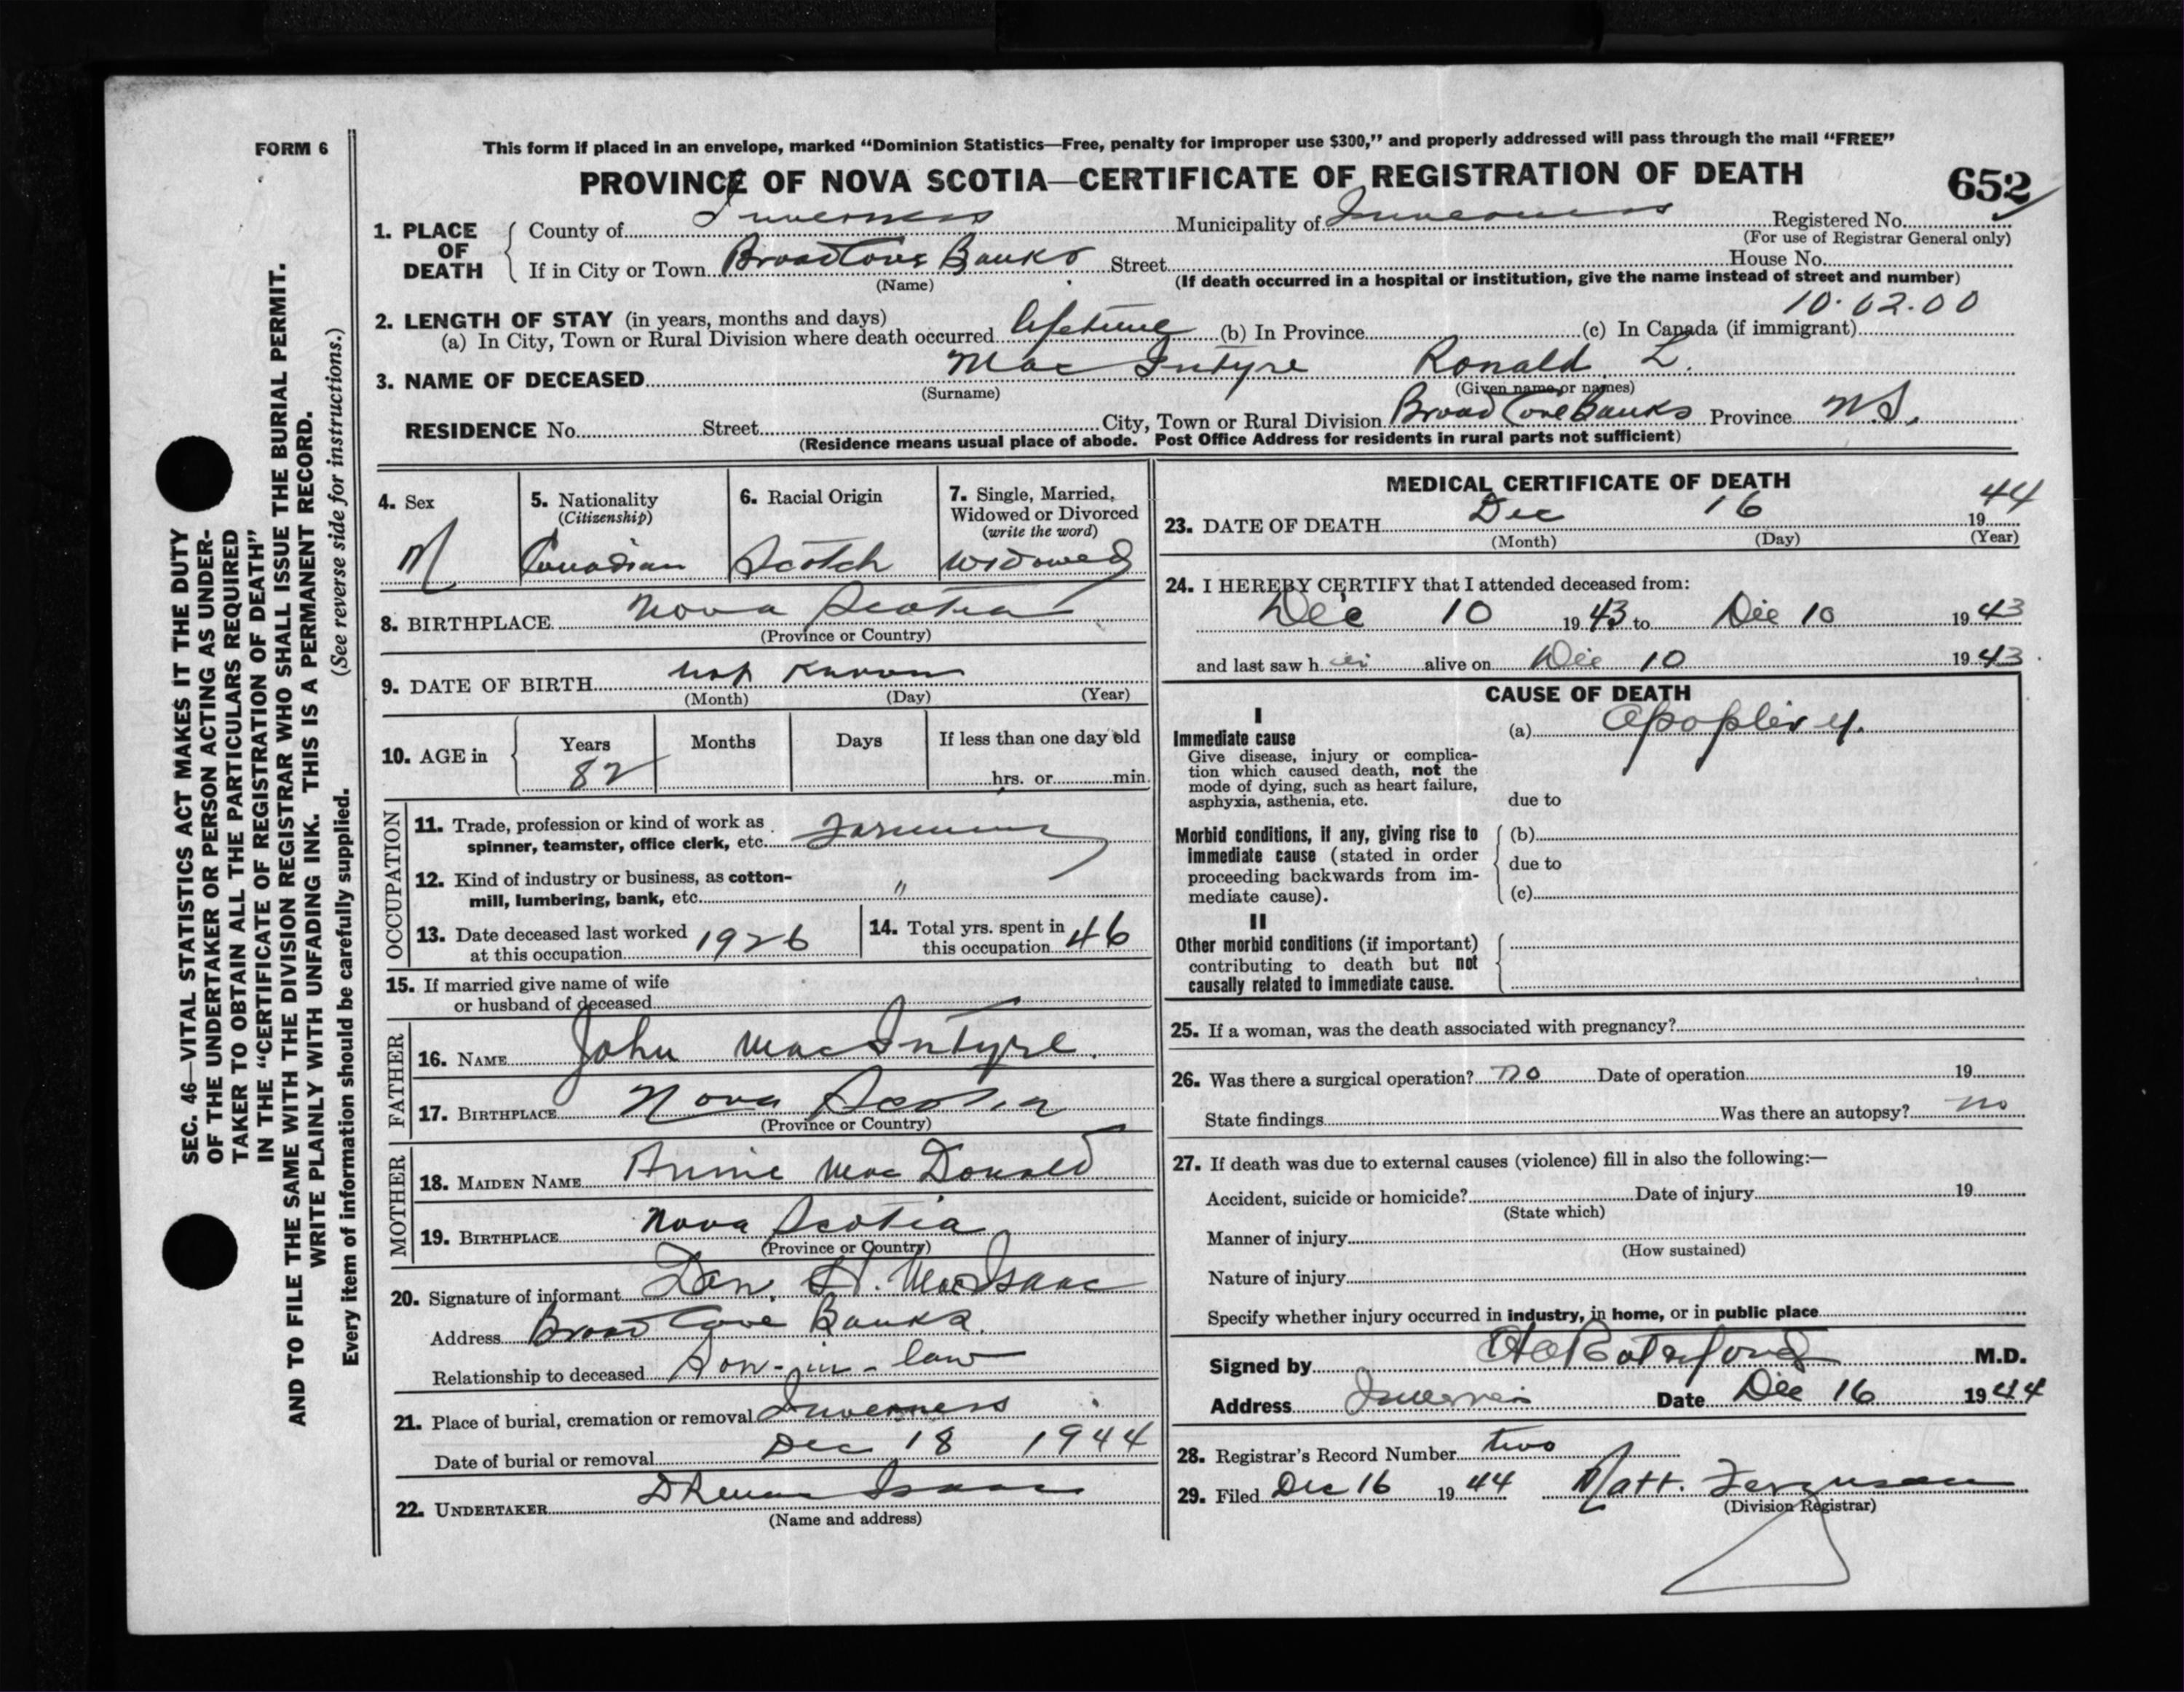 FORM 6
This form if placed in an envelope, marked "Dominion Statistics—Free, penalty for improper use $300," and properly addressed will pass through the mail "FREE"
PROVINCE OF NOVA SCOTIA—CERTIFICATE OF REGISTRATION OF DEATH
652
1. PLACE OF DEATH
County of Inverness Municipality of Inverness Registered No.
(For use of Registrar General only)
If in City or Town Broad Cove Banks Street House No.
(Name) (If death occurred in a hospital or institution, give the name instead of street and number)
10·02·00
2. LENGTH OF STAY (in years, months and days)
(a) In City, Town or Rural Division where death occurred lifetime (b) In Province (c) In Canada (if immigrant)
3. NAME OF DECEASED Mac Intyre Ronald L.
(Surname) (Given name or names)
RESIDENCE No. Street City, Town or Rural Division Broad Cove Banks Province N.S.
(Residence means usual place of abode. Post Office Address for residents in rural parts not sufficient)
SEC. 46—VITAL STATISTICS ACT MAKES IT THE DUTY
OF THE UNDERTAKER OR PERSON ACTING AS UNDER-
TAKER TO OBTAIN ALL THE PARTICULARS REQUIRED
IN THE "CERTIFICATE OF REGISTRATION OF DEATH"
AND TO FILE THE SAME WITH THE DIVISION REGISTRAR WHO SHALL ISSUE THE BURIAL PERMIT.
WRITE PLAINLY WITH UNFADING INK. THIS IS A PERMANENT RECORD.
Every item of information should be carefully supplied. (See reverse side for instructions.)
4. Sex
M
5. Nationality
(Citizenship)
Canadian
6. Racial Origin
Scotch
7. Single, Married,
Widowed or Divorced
(write the word)
Widowed
8. BIRTHPLACE Nova Scotia
(Province or Country)
9. DATE OF BIRTH not known
(Month) (Day) (Year)
10. AGE in Years Months Days If less than one day old
82 hrs. or min.
OCCUPATION
11. Trade, profession or kind of work as
spinner, teamster, office clerk, etc. Farming
12. Kind of industry or business, as cotton-
mill, lumbering, bank, etc. "
13. Date deceased last worked
at this occupation 1926
14. Total yrs. spent in
this occupation 46
15. If married give name of wife
or husband of deceased
FATHER
16. NAME John MacIntyre.
17. BIRTHPLACE Nova Scotia
(Province or Country)
MOTHER
18. MAIDEN NAME Annie Mac Donald
19. BIRTHPLACE Nova Scotia
(Province or Country)
20. Signature of informant Dan. H. MacIsaac
Address Broad Cove Banks.
Relationship to deceased Son-in-law
21. Place of burial, cremation or removal Inverness
Date of burial or removal Dec 18 1944
22. UNDERTAKER
(Name and address)
MEDICAL CERTIFICATE OF DEATH
23. DATE OF DEATH Dec 16 1944
(Month) (Day) (Year)
24. I HEREBY CERTIFY that I attended deceased from:
Dec 10 1943 to Dec 10 1943
and last saw h alive on Dec 10 1943
CAUSE OF DEATH
I
Immediate cause
Give disease, injury or complica-
tion which caused death, not the
mode of dying, such as heart failure,
asphyxia, asthenia, etc.
(a) Apoplexy.
due to
Morbid conditions, if any, giving rise to
immediate cause (stated in order
proceeding backwards from im-
mediate cause).
(b)
due to
(c)
II
Other morbid conditions (if important)
contributing to death but not
causally related to immediate cause.
25. If a woman, was the death associated with pregnancy?
26. Was there a surgical operation? no Date of operation 19
State findings Was there an autopsy? no
27. If death was due to external causes (violence) fill in also the following:—
Accident, suicide or homicide? Date of injury 19
(State which)
Manner of injury
(How sustained)
Nature of injury
Specify whether injury occurred in industry, in home, or in public place
Signed by M.D.
Address Inverness Date Dec 16 1944
28. Registrar's Record Number two
29. Filed Dec 16 1944 Matt. Ferguson
(Division Registrar)